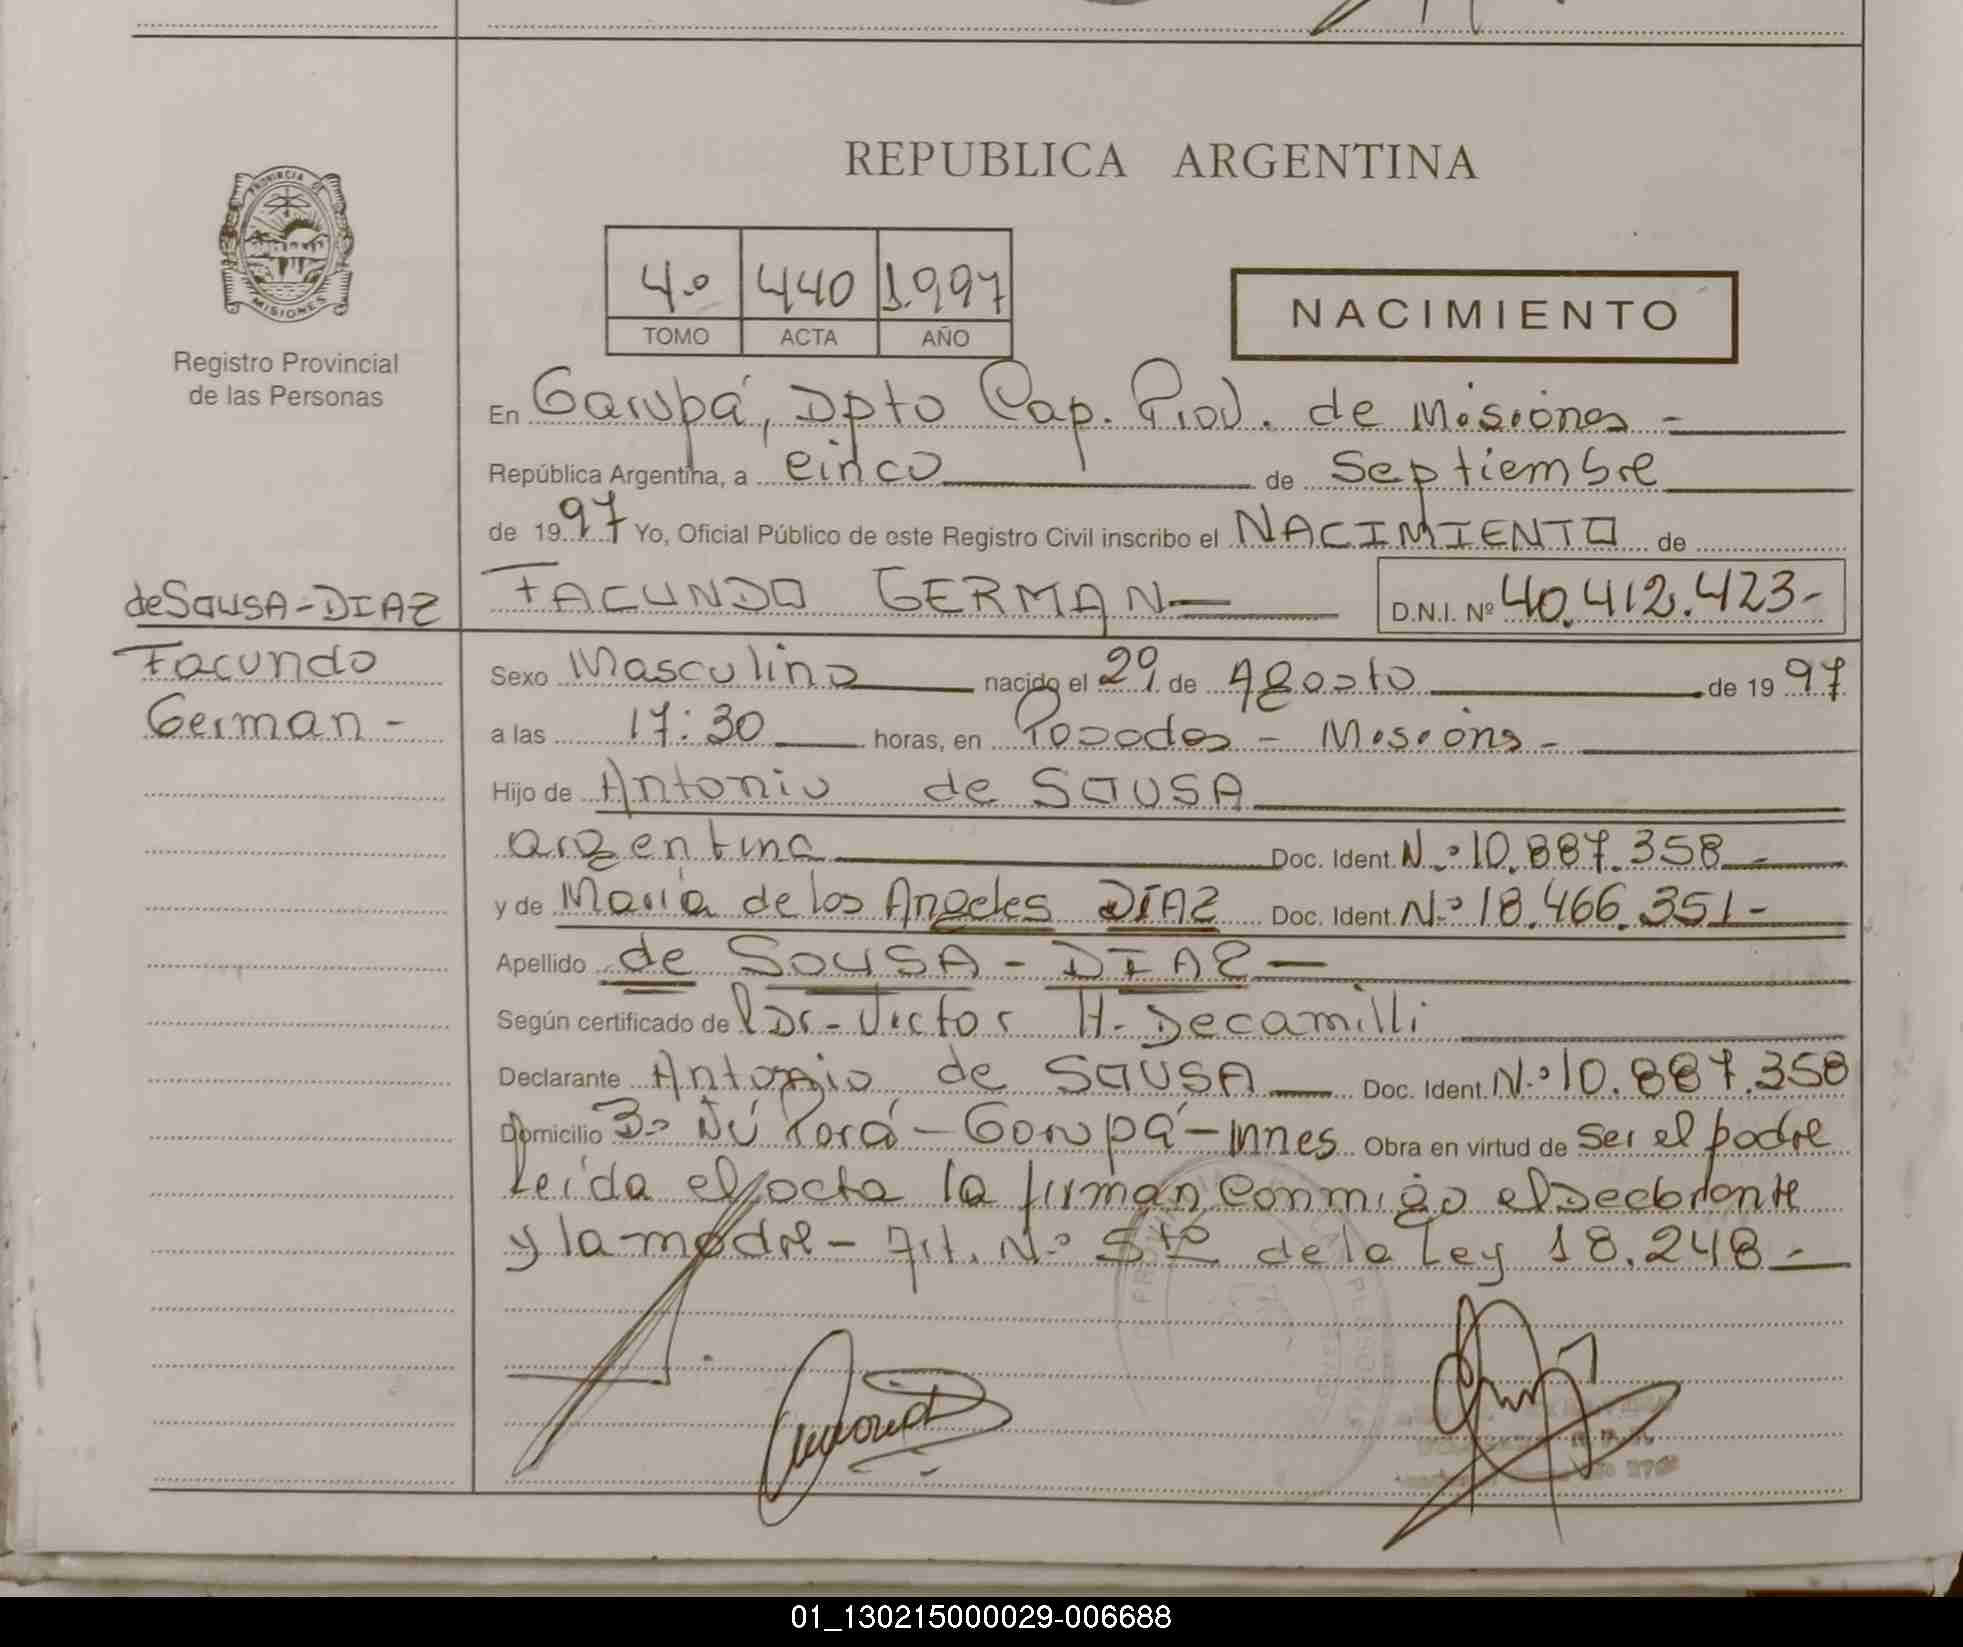 REPUBLICA ARGENTINA
PROVINCIA DE
MISIONES
Registro Provincial
de las Personas
4º 440 1.997
TOMO ACTA AÑO
NACIMIENTO
En Garupá, Dpto Cap. Prov. de Misiones -
República Argentina, a cinco de Septiembre
de 1997 Yo, Oficial Público de este Registro Civil inscribo el NACIMIENTO de
de SOUSA-DIAZ
Facundo
German -
FACUNDO GERMAN D.N.I. Nº 40.412.423-
Sexo Masculino nacido el 29 de Agosto de 1997
a las 17:30 horas, en Posadas - Misions -
Hijo de Antonio de SOUSA
argentino Doc. Ident. N.º 10.887.358 -
y de María de los Angeles DÍAZ Doc. Ident. N.º 18.466.351 -
Apellido de SOUSA - DIAZ -
Según certificado del Dr. Victor H. Decamilli
Declarante Antonio de SOUSA Doc. Ident. N.º 10.887.358
Domicilio Bº Ñú Porá - Garupá - Mnes Obra en virtud de ser el padre
Leída el acta la firman conmigo el Declarante
y la madre - Art. N.º 5to de la Ley 18.248 -
01_130215000029-006688